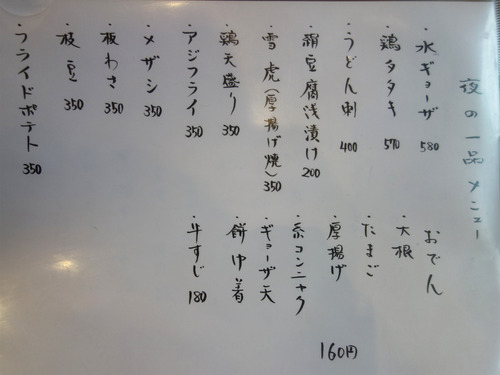 夜の一品メニュー
・水ギョーザ 580
・鶏タタキ 570
・うどん刺 400
・絹豆腐浅漬け 200
・雪虎(厚揚げ焼) 350
・鶏天盛り 350
・アジフライ 350
・メザシ 350
・板わさ 350
・枝豆 350
・フライドポテト 350
おでん
・大根
・たまご
・厚揚げ
・糸コンニャク
・ギョーザ天
・餅巾着
・牛すじ 180
160円